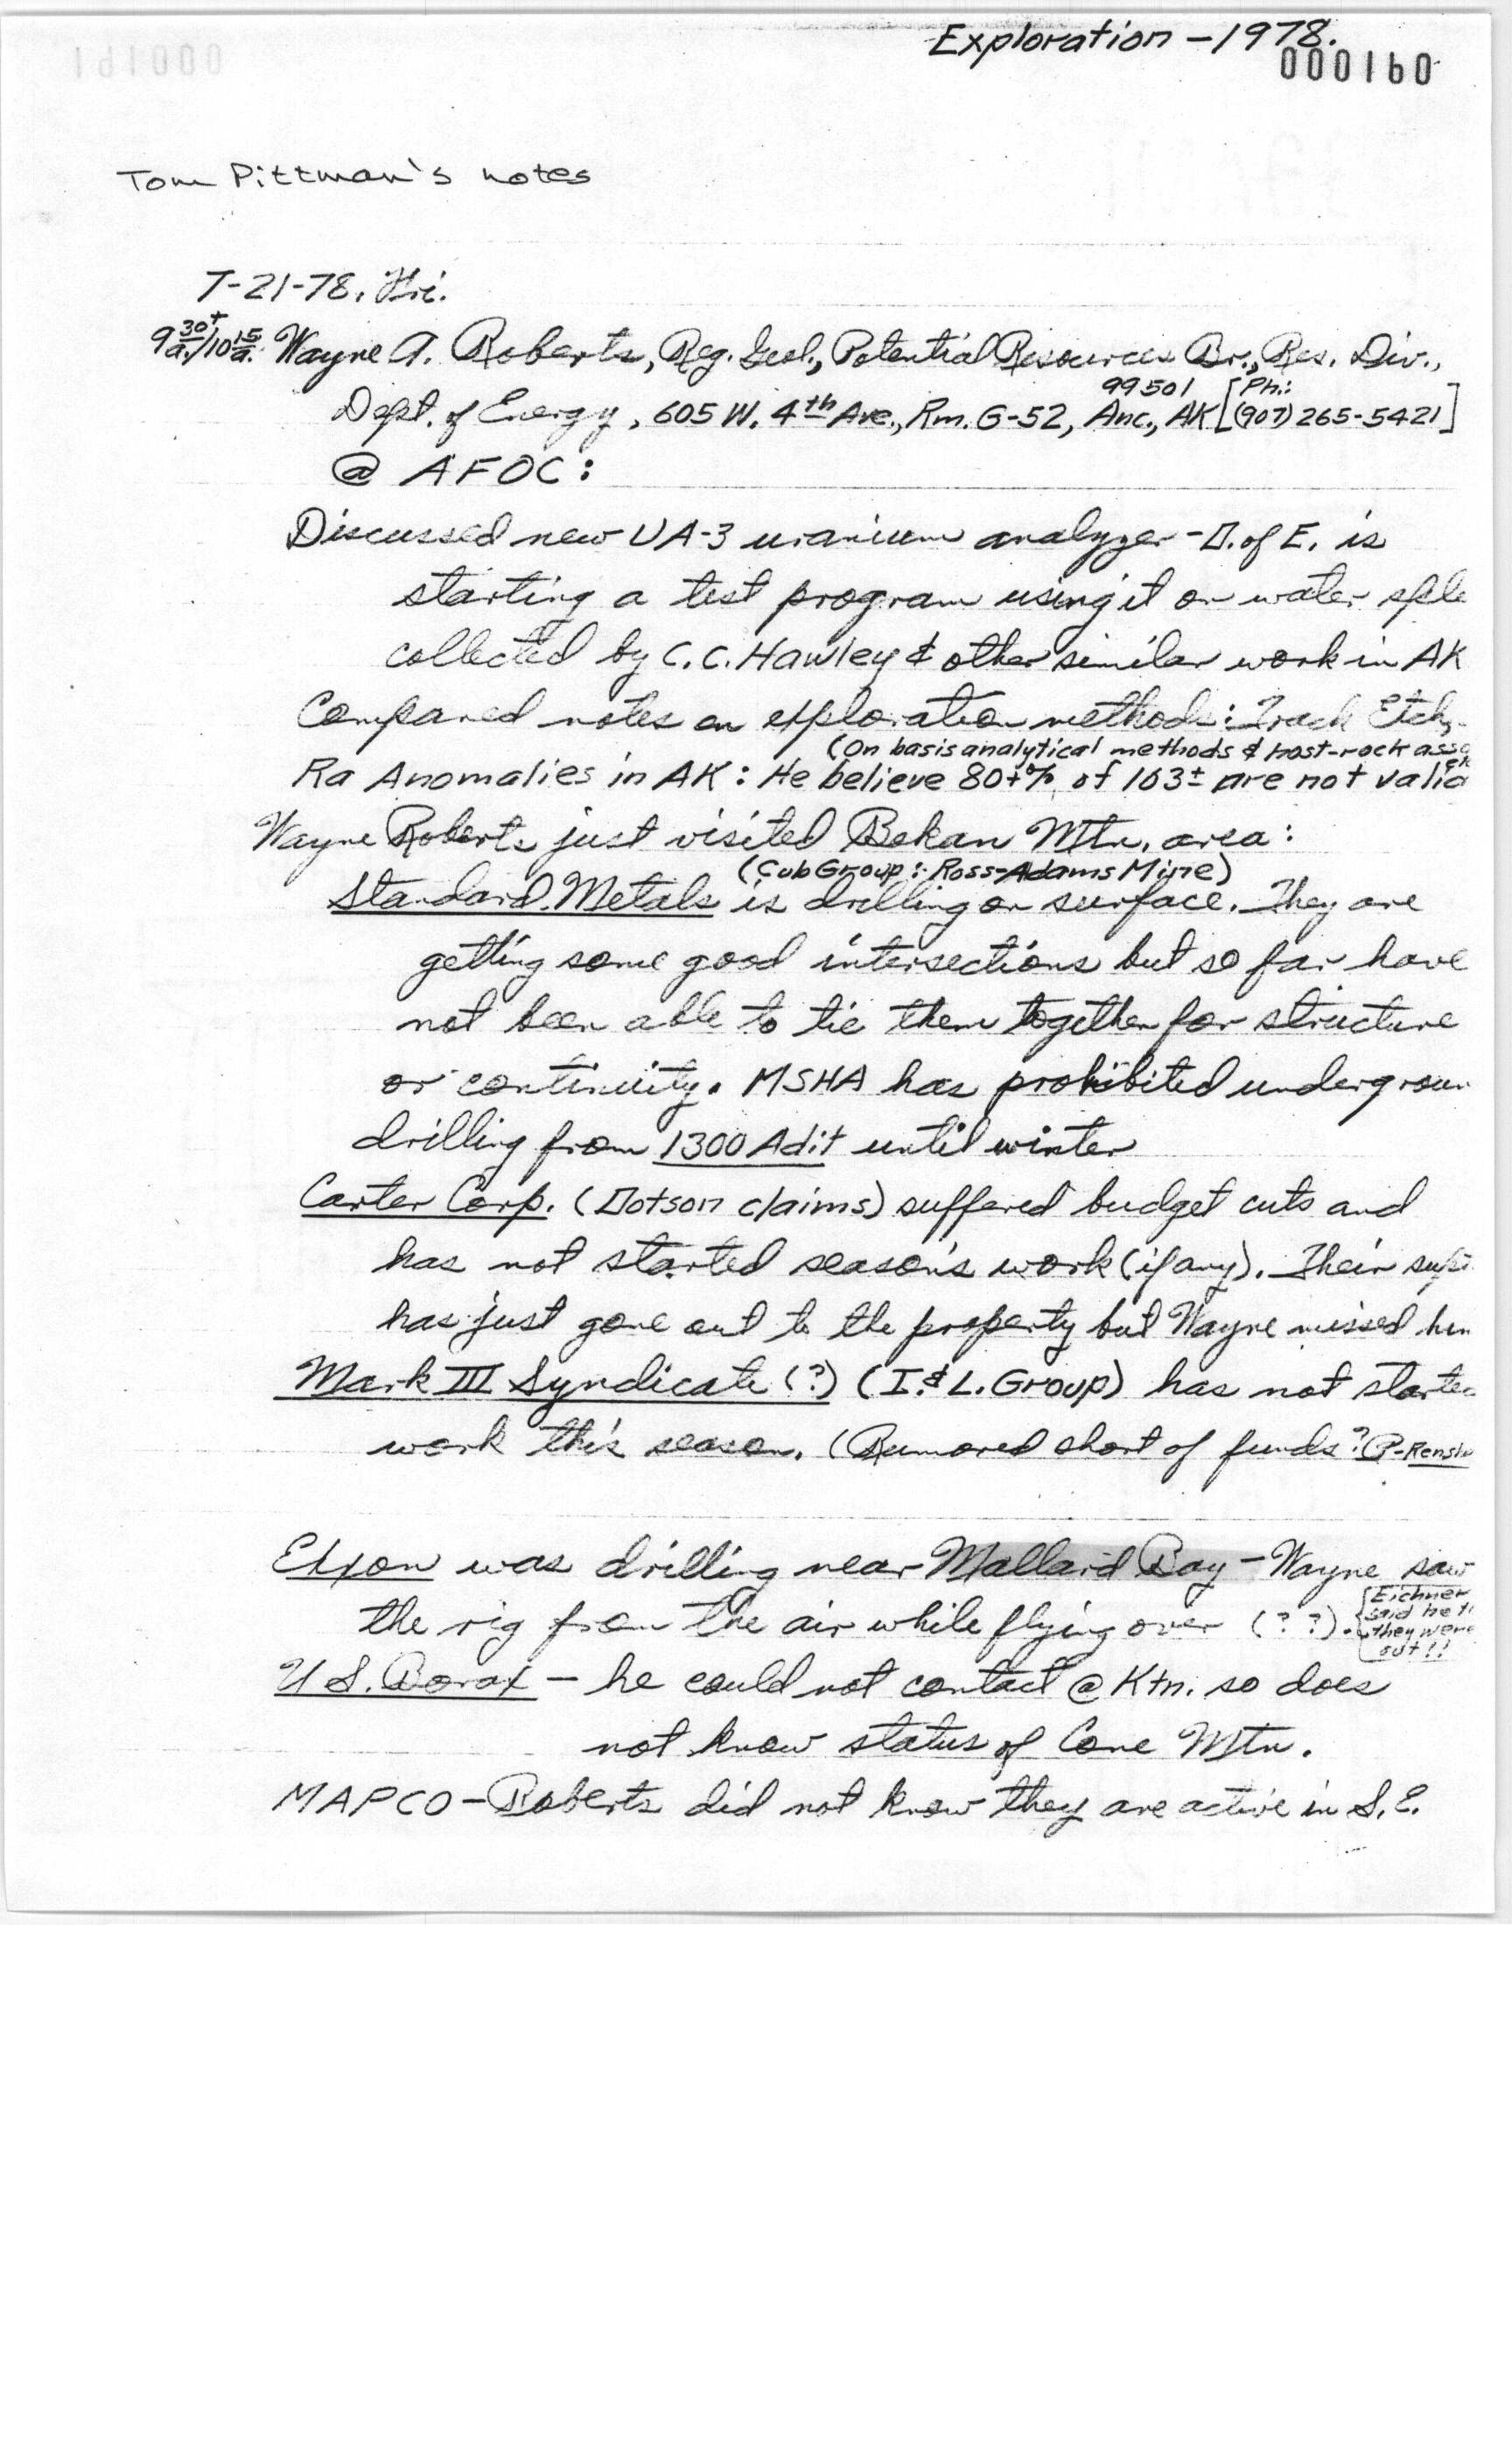 Exploration - 1978.
000160
Tom Pittman's notes
7-21-78, Fri.
9 30+ a./10 15 a. Wayne A. Roberts, Reg. Geol., Potential Resources Br., Res. Div.,
99501 [Ph.:
Dept. of Energy, 605 W. 4th Ave., Rm. G-52, Anc., AK (907) 265-5421]
@ AFOC:
Discussed new UA-3 uranium analyzer - D. of E. is
starting a test program using it on water sple
collected by C.C. Hawley & other similar work in AK
Compared notes on exploration methods: Track Etch,
(On basis analytical methods & host-rock
Ra Anomalies in AK: He believe 80+% of 103± are not valid
Wayne Roberts just visited Bokan Mtn. area:
(Cub Group: Ross-Adams Mine)
Standard Metals is drilling on surface. They are
getting some good intersections but so far have
not been able to tie them together for structure
or continuity. MSHA has prohibited undergroun
drilling from 1300 Adit until winter
Carter Corp. (Dotson claims) suffered budget cuts and
has not started season's work (if any). Their
has just gone out to the property but Wayne missed
Mark III Syndicate (?) (I. & L. Group) has not starte
work this season. (Rumored short of funds?
Exxon was drilling near Mallard Bay - Wayne saw
the rig from the air while flying over (??). [Eichner
said he
they were
out!!
U.S. Borax - he could not contact @ Ktn. so does
not know status of Cone Mtn.
MAPCO - Roberts did not know they are active in S.E.